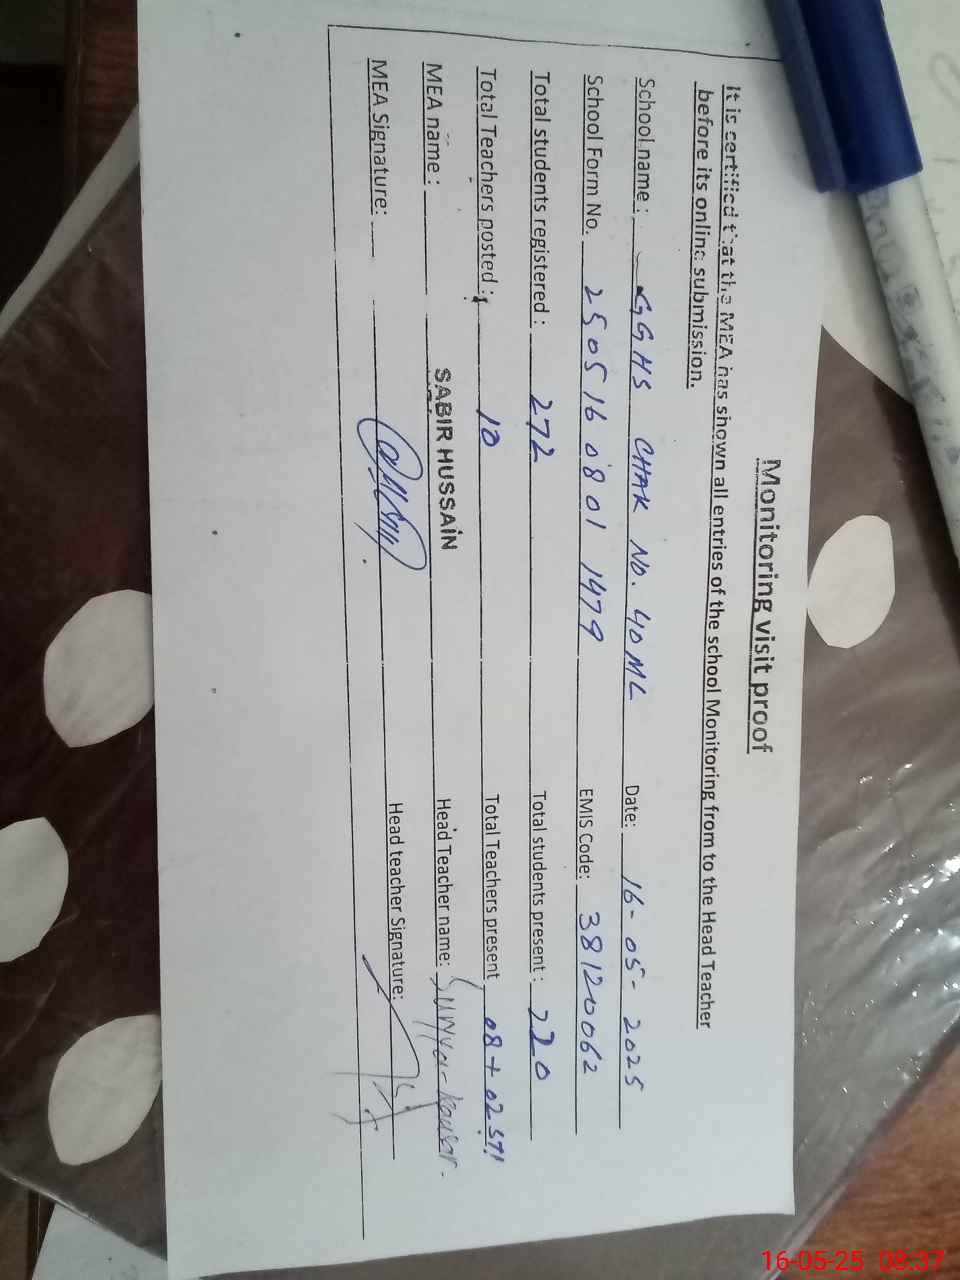 Monitoring visit proof
It is certified that the MEA has shown all entries of the school Monitoring from to the Head Teacher
before its online submission.
School name: GGHS CHAK NO. 40 ML Date: 16-05-2025
School Form No. 250516 0801 1479 EMIS Code: 38120062
Total students registered: 272 Total students present: 220
Total Teachers posted: 10 Total Teachers present 08 + 02 STI
MEA name: SABIR HUSSAIN Head Teacher name: Surryya Kousar
MEA Signature: Head teacher Signature:
16-05-25 08:37